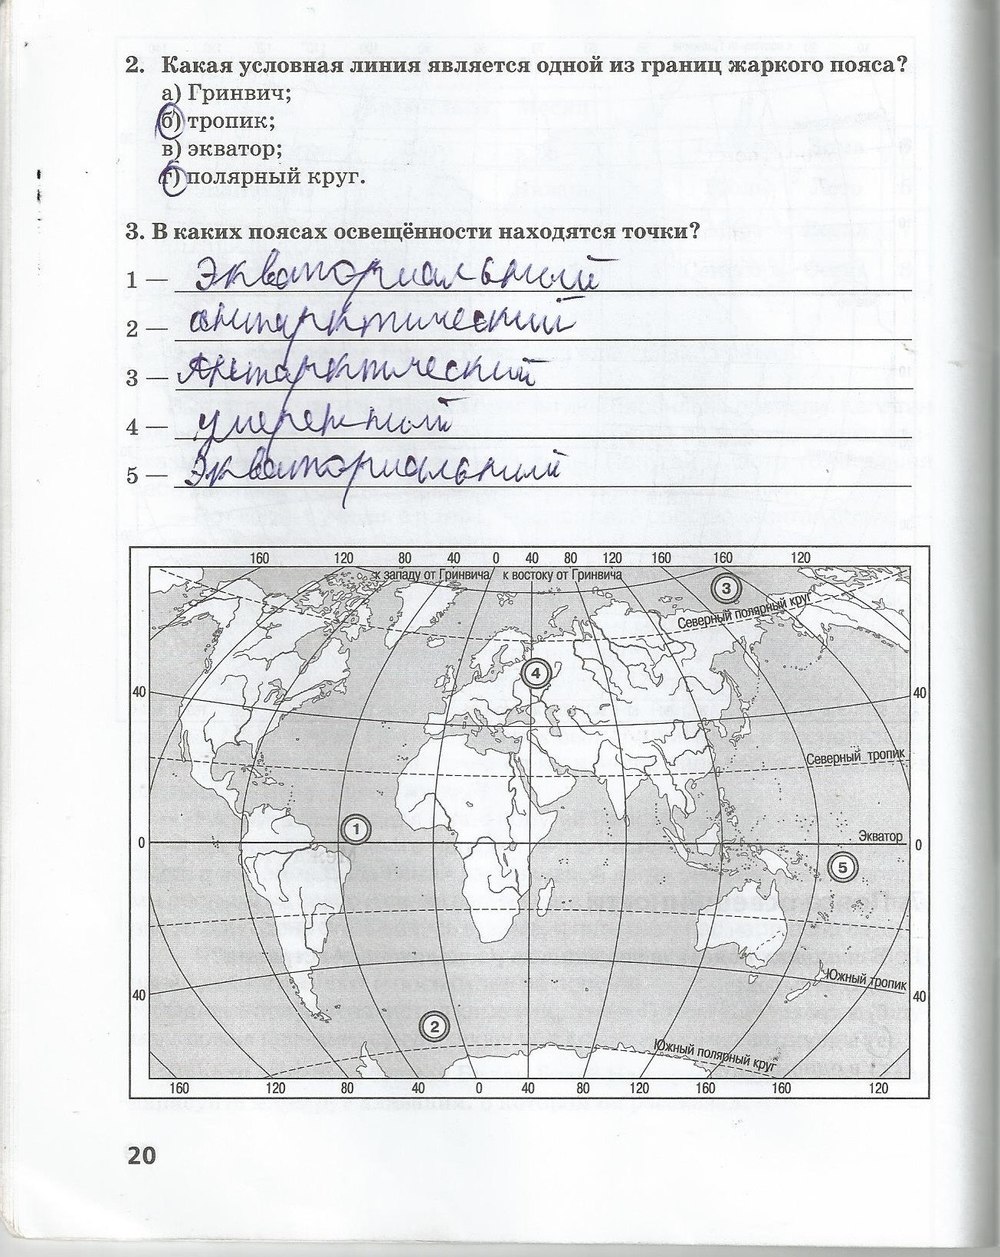 2. Какая условная линия является одной из границ жаркого пояса?
а) Гринвич;
б) тропик;
в) экватор;
г) полярный круг.
3. В каких поясах освещённости находятся точки?
1 — Экваториальный
2 — антарктический
3 — Антарктический
4 — умеренный
5 — Экваториальный
160 120 80 40 0 40 80 120 160 160 120
к западу от Гринвича к востоку от Гринвича
3
Северный полярный круг
4
40 40
Северный тропик
1
Экватор
0 0
5
Южный тропик
40 40
2
Южный полярный круг
160 120 80 40 0 40 80 120 160 160 120
20